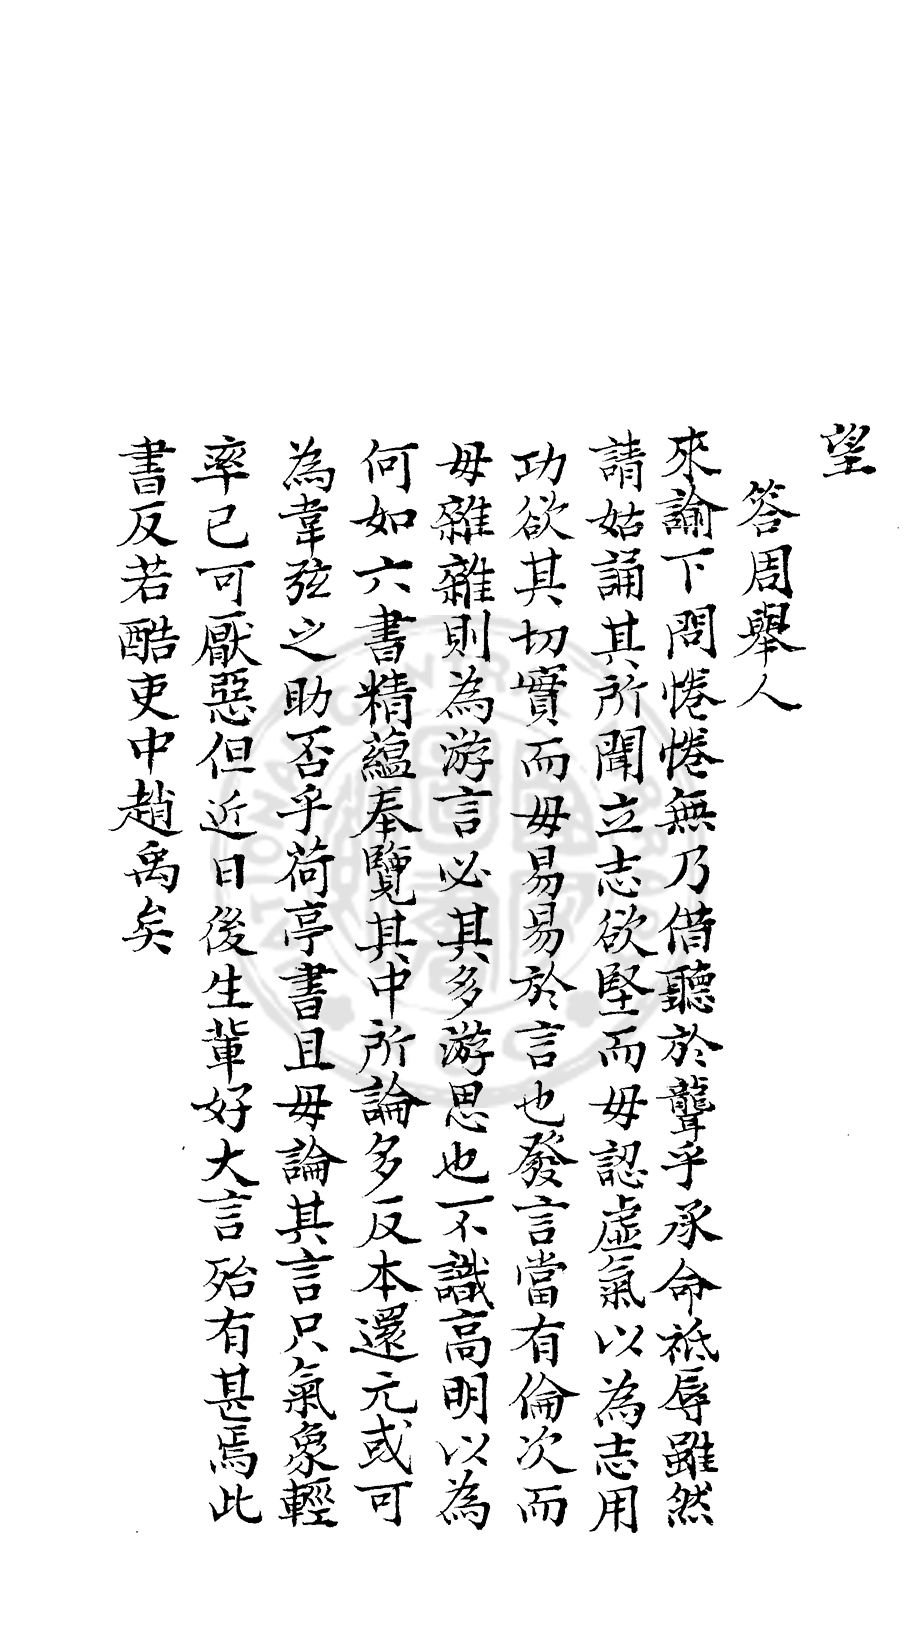 望
答周舉人
來諭下問惓惓無乃借聽於聾乎承命祗辱雖然
請姑誦其所聞立志欲堅而毋認虛氣以為志用
功欲其切實而毋易易於言也發言當有倫次而
毋雜雜則為游言必其多游思也不識高明以為
何如六書精蘊奉覽其中所論多反本還元或可
為韋弦之助否乎荷亭書且毋論其言只氣象輕
率已可厭惡但近日後生輩好大言殆有甚焉此
書反若酷吏中趙禹矣